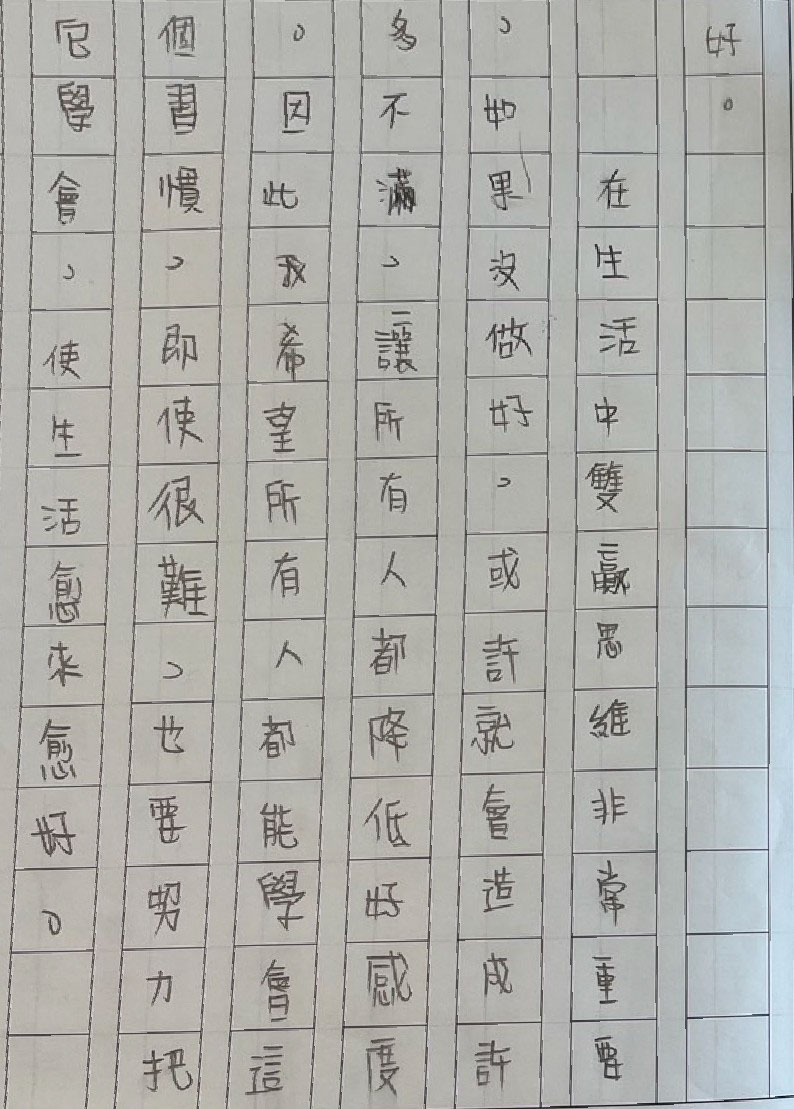 好。
在生活中雙贏思維非常重要
，如果沒做好，或許就會造成許
多不滿，讓所有人都降低好感度
。因此我希望所有人都能學會這
個習慣，即使很難，也要努力把
它學會，使生活愈來愈好。